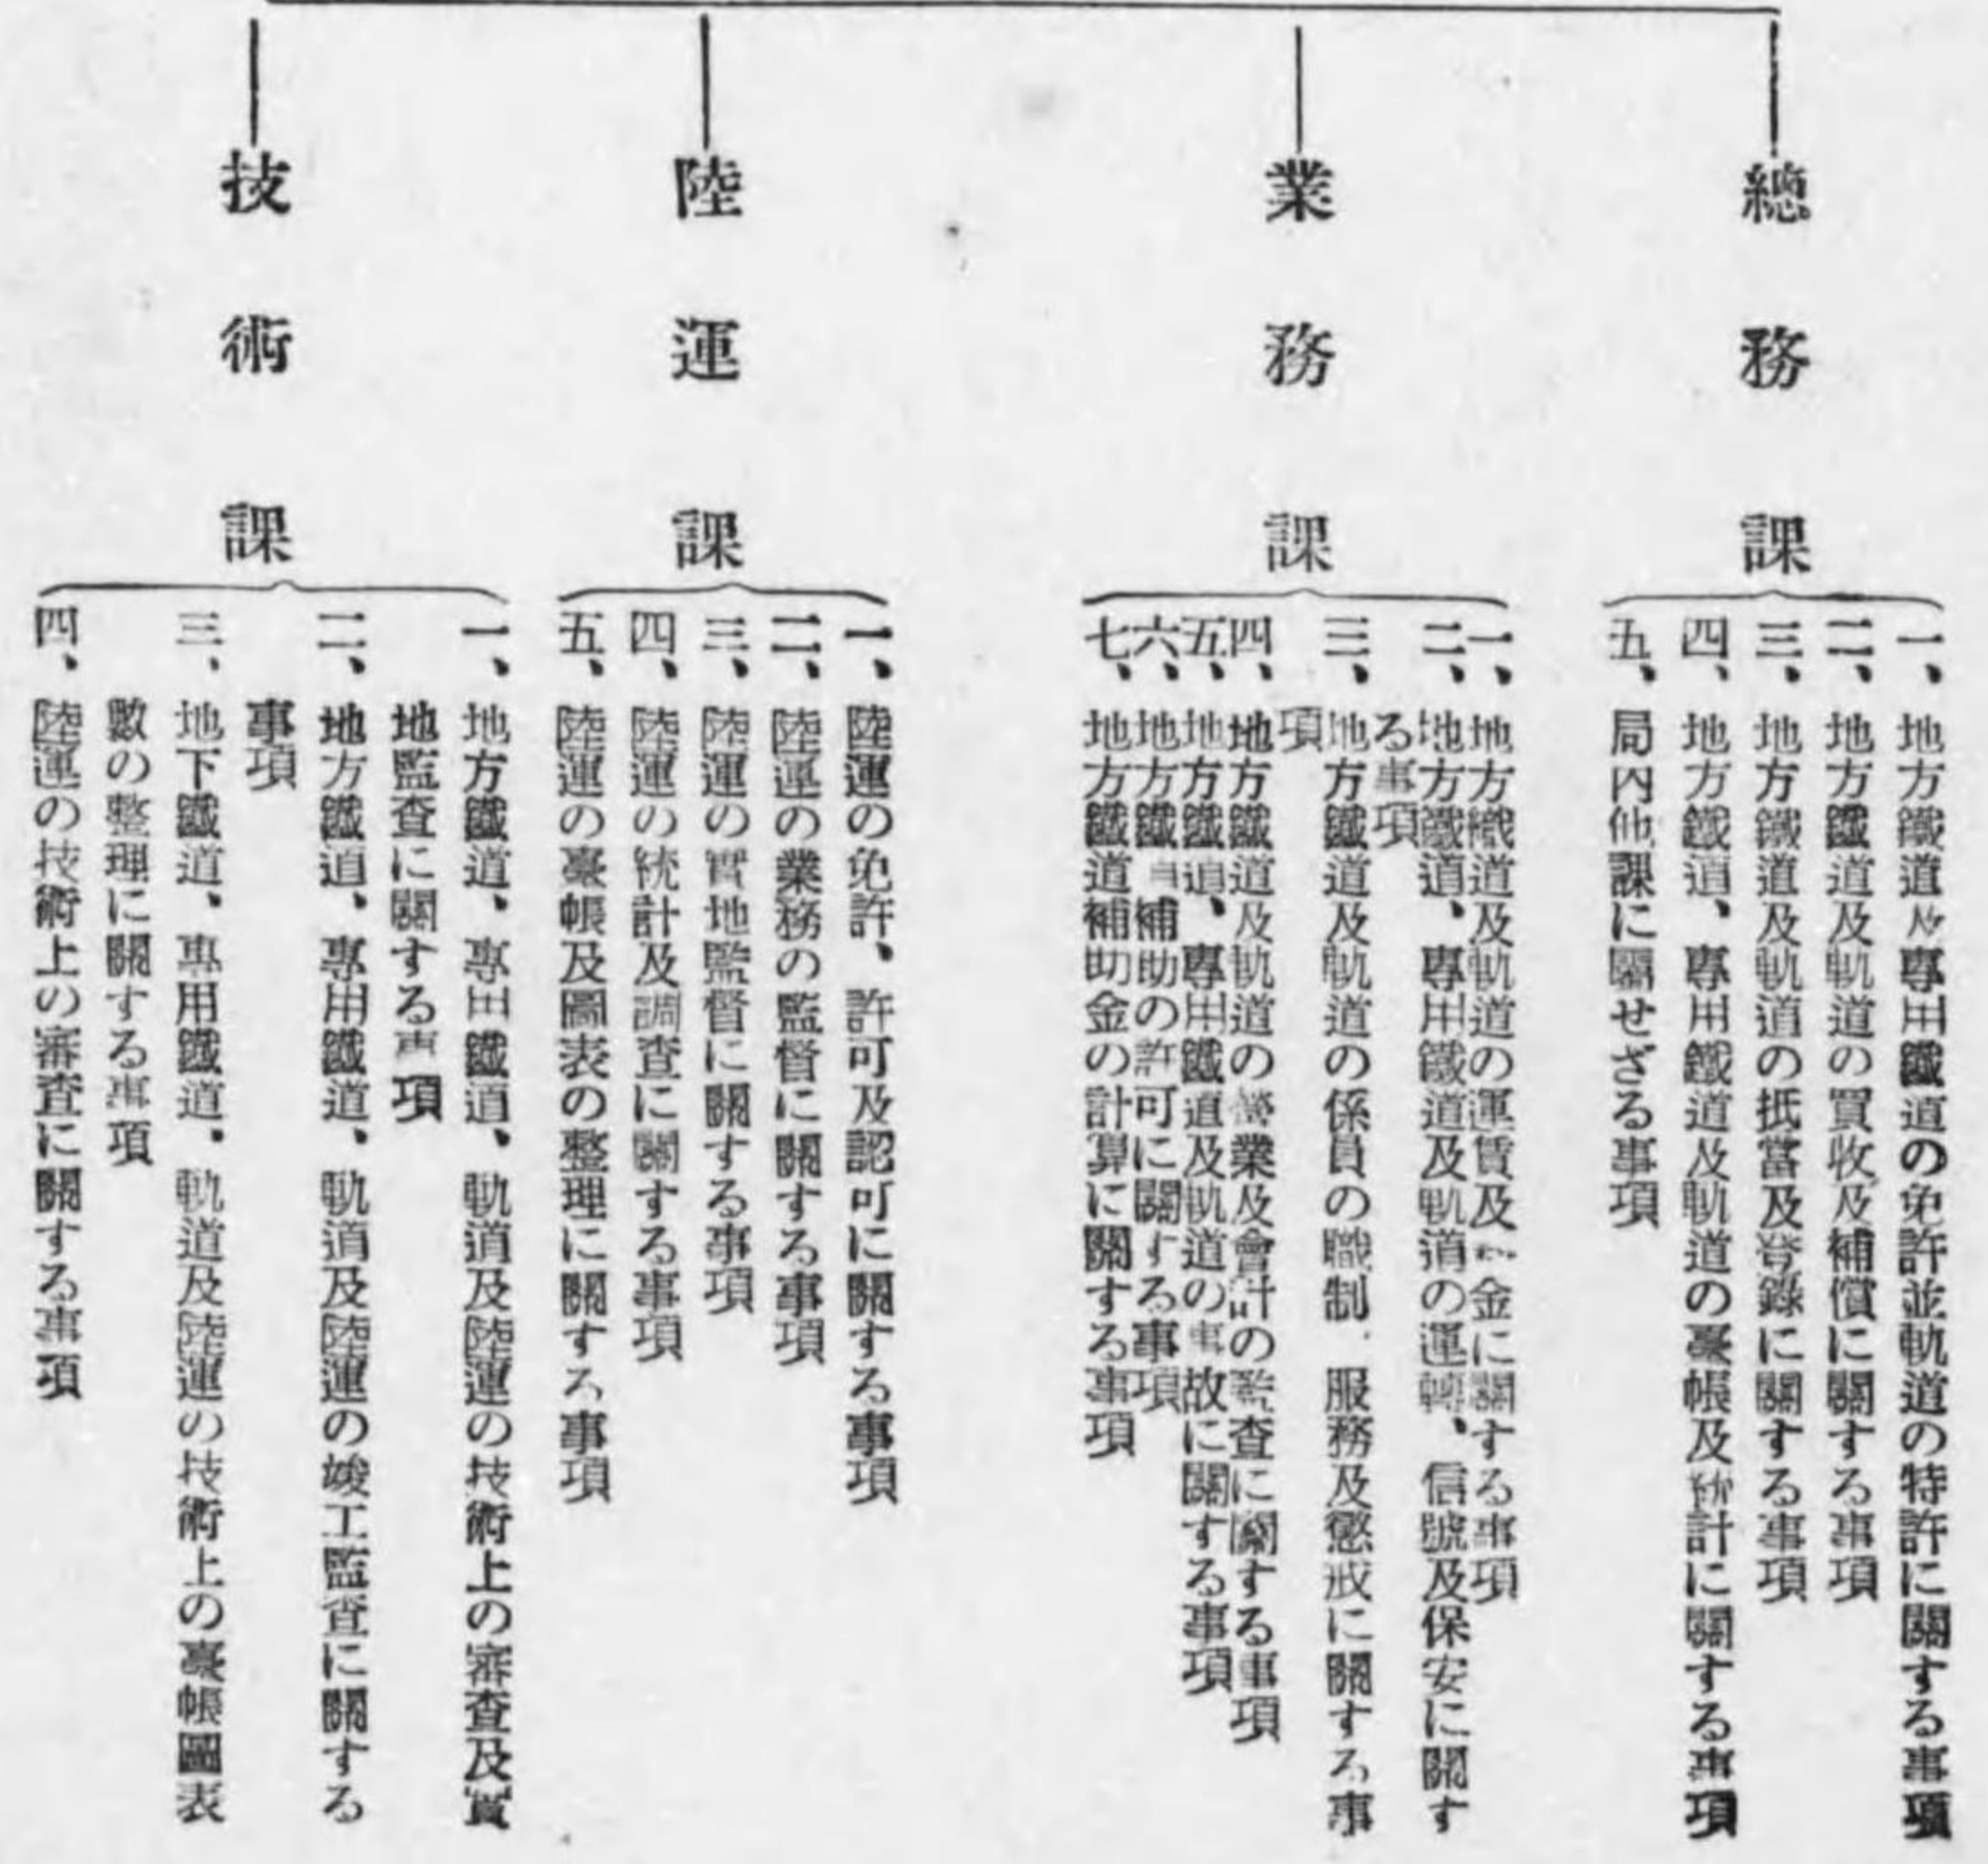 總務課
一、地方鐵道及專用鐵道の免許並軌道の特許に關する事項
二、地方鐵道及軌道の買收及補償に關する事項
三、地方鐵道及軌道の抵當及登錄に關する事項
四、地方鐵道、專用鐵道及軌道の臺帳及統計に關する事項
五、局內他課に屬せざる事項
業務課
一、地方鐵道及軌道の運賃及金に關する事項
二、地方鐵道、專用鐵道及軌道の運轉、信號及保安に關す
る事項
三、地方鐵道及軌道の係員の職制、服務及懲戒に關する事
項
四、地方鐵道及軌道の營業及會計の監査に關する事項
五、地方鐵道、專用鐵道及軌道の事故に關する事項
六、地方鐵道補助の許可に關する事項
七、地方鐵道補助金の計算に關する事項
陸運課
一、陸運の免許、許可及認可に關する事項
二、陸運の業務の監督に關する事項
三、陸運の實地監督に關する事項
四、陸運の統計及調査に關する事項
五、陸運の臺帳及圖表の整理に關する事項
技術課
一、地方鐵道、專用鐵道、軌道及陸運の技術上の審査及實
地監査に關する事項
二、地方鐵道、專用鐵道、軌道及陸運の竣工監査に關する
事項
三、地下鐵道、專用鐵道、軌道及陸運の技術上の臺帳圖表
數の整理に關する事項
四、陸運の技術上の審査に關する事項